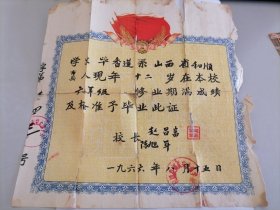 学生毕香道系山西省和顺
县人现年十二岁在本校
六年级修业期满成绩
及格准予毕业此证
校长
一九六六年八月十五日